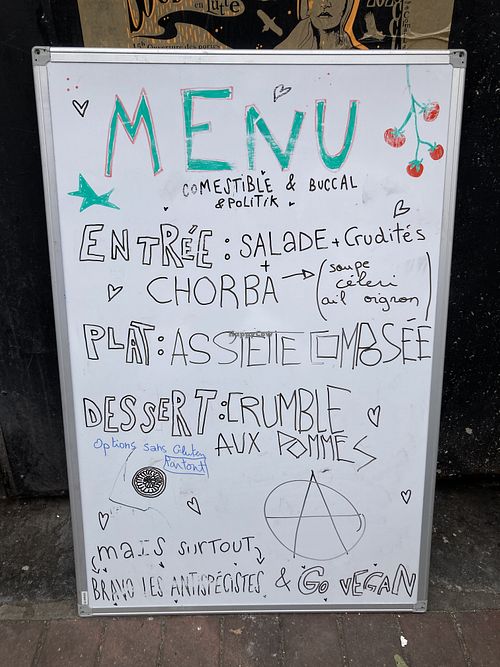 en lutte
15h Ouverture des portes
MENU
COMESTIBLE & BUCCAL
& POLITIK
ENTRÉE : SALADE + Crudités
+
CHORBA → (soupe
céleri
ail oignon)
PLAT : ASSIETTE COMPOSÉE
HappyCow
DESSERT : CRUMBLE
AUX POMMES
Options sans Gluten
Partout
mais surtout
BRAVO LES ANTISPÉCISTES & GO VEGAN